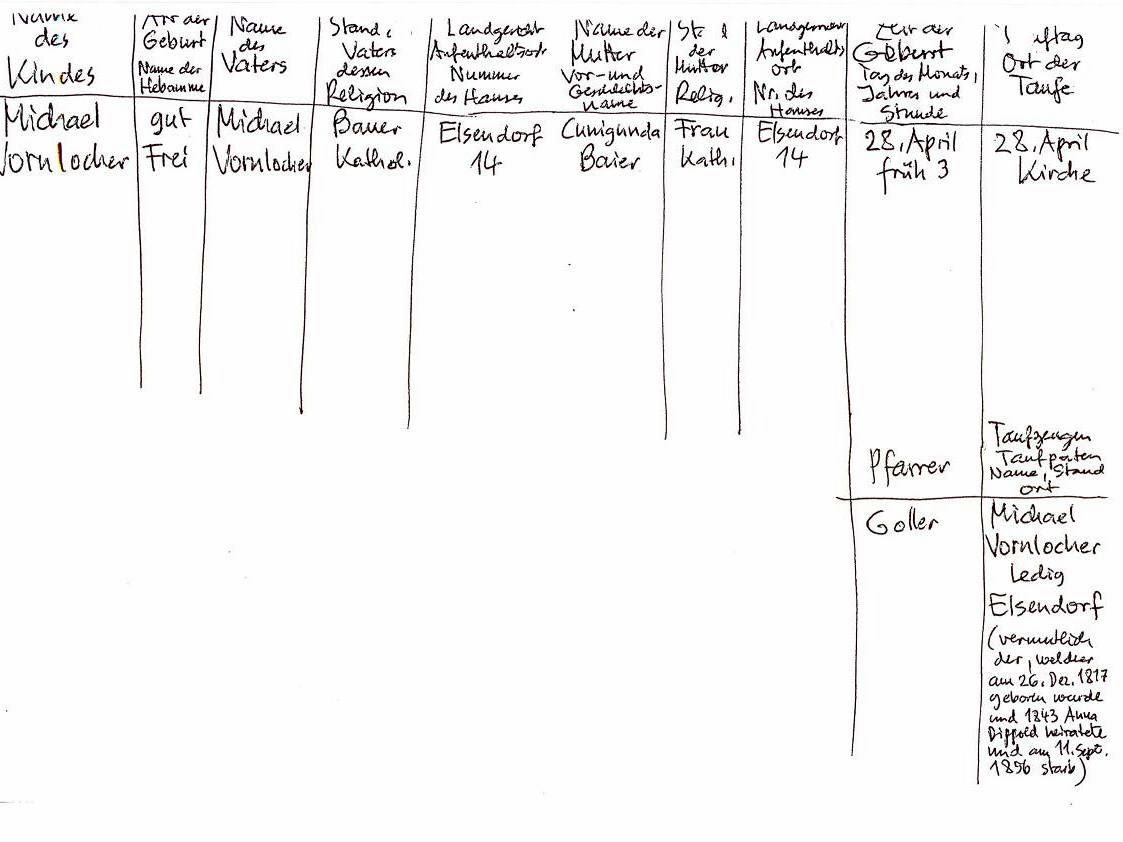 Name
des
Kindes
Art der
Geburt
Name der
Hebamme
Name
des
Vaters
Stand
Vaters
dessen
Religion
Landgericht
Aufenthaltsort
Nummer
des Hauses
Name der
Mutter
Vor- und
Geschlechts-
name
der
Mutter
Relig.
Landgericht
Aufenthalts
ort
Nr. des
Hauses
Zeit der
Geburt
Tag des Monats,
Jahres und
Stunde
Ort der
Taufe
Michael
Vornlocher
gut
Frei
Michael
Vornlocher
Bauer
Kathol.
Elsendorf
14
Cunigunda
Baier
Frau
Kath.
Elsendorf
14
28. April
früh 3
28. April
Kirche
Pfarrer
Goller
Taufzeugen
Taufpaten
Name, Stand
ort
Michael
Vornlocher
Ledig
Elsendorf
(vermutlich
der, welcher
am 26. Dez. 1817
geboren wurde
und 1843 Anna
Dippold heiratete
und am 11. Sept.
1856 starb)